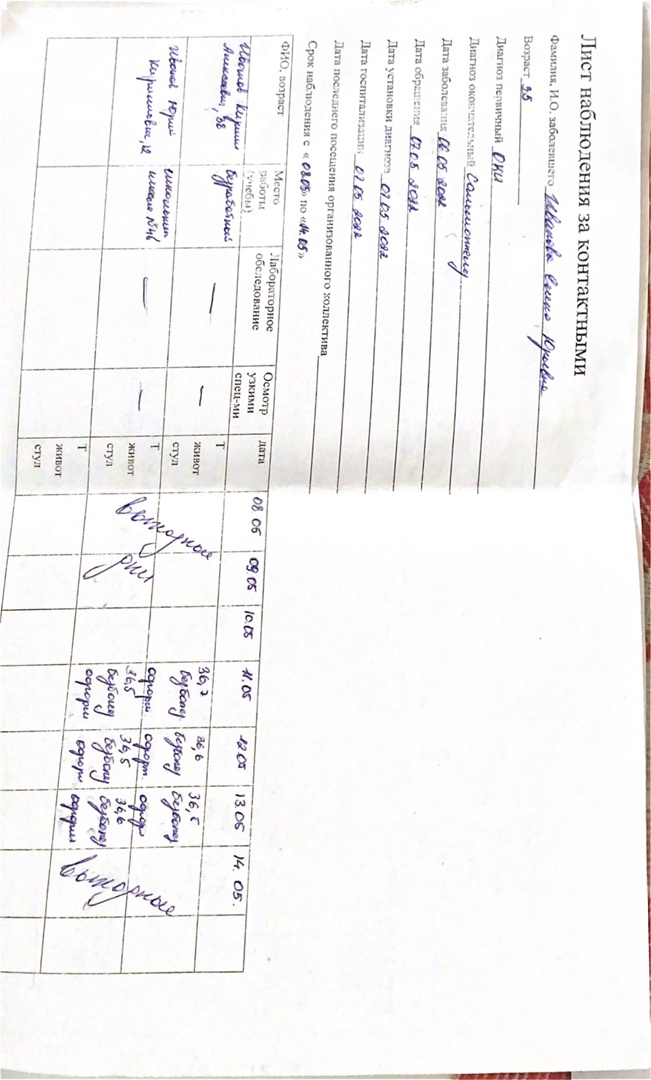 Лист наблюдения за контактными
Фамилия, И.О. заболевшего Иванова Елена Юрьевна
Возраст 35
Диагноз первичный ОКИ
Диагноз окончательный Сальмонеллез
Дата заболевания 06 05 2022
Дата обращения 07.05 2022
Дата установки диагноза 07.05 2022
Дата госпитализации 07 05 2022
Дата последнего посещения организованного коллектива
Срок наблюдения с «08.05» по «14.05»
ФИО, возраст Место работы (учебы) Лабораторное обследование Осмотр узкими спец-ми дата 08 05 09.05 10.05 11.05 12.05 13.05 14.05.
Иванов Кирилл безработный — — Т 36,7 36,6 36,5
живот безболез безболез безболез
стул оформ. оформ. оформ
выходные дни
Иванов Юрий Кириллович, 12 школьник школа №46 — — Т 36,5 36,5 36,6
живот безболез безболез безболез
стул оформ оформ оформ
выходные
Т
живот
стул